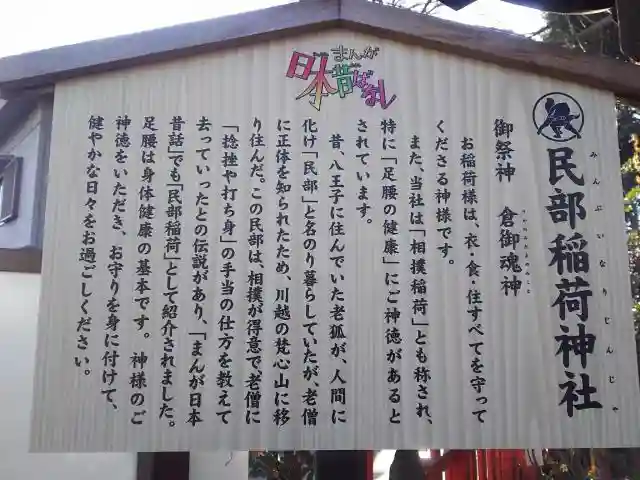 まんが
日本昔ばなし
民部稲荷神社
みんぶいなりじんじゃ
御祭神 倉御魂神
お稲荷様は、衣・食・住すべてを守って
くださる神様です。
また、当社は「相撲稲荷」とも称され、
特に「足腰の健康」にご神徳があると
されています。
昔、八王子に住んでいた老狐が、人間に
化け「民部」と名のり暮らしていたが、老僧
に正体を知られたため、川越の梵心山に移
り住んだ。この民部は、相撲が得意で、老僧に
「捻挫や打ち身」の手当の仕方を教えて
去っていったとの伝説があり、「まんが日本
昔話」でも「民部稲荷」として紹介されました。
足腰は身体健康の基本です。神様のご
神徳をいただき、お守りを身に付けて、
健やかな日々をお過ごしください。